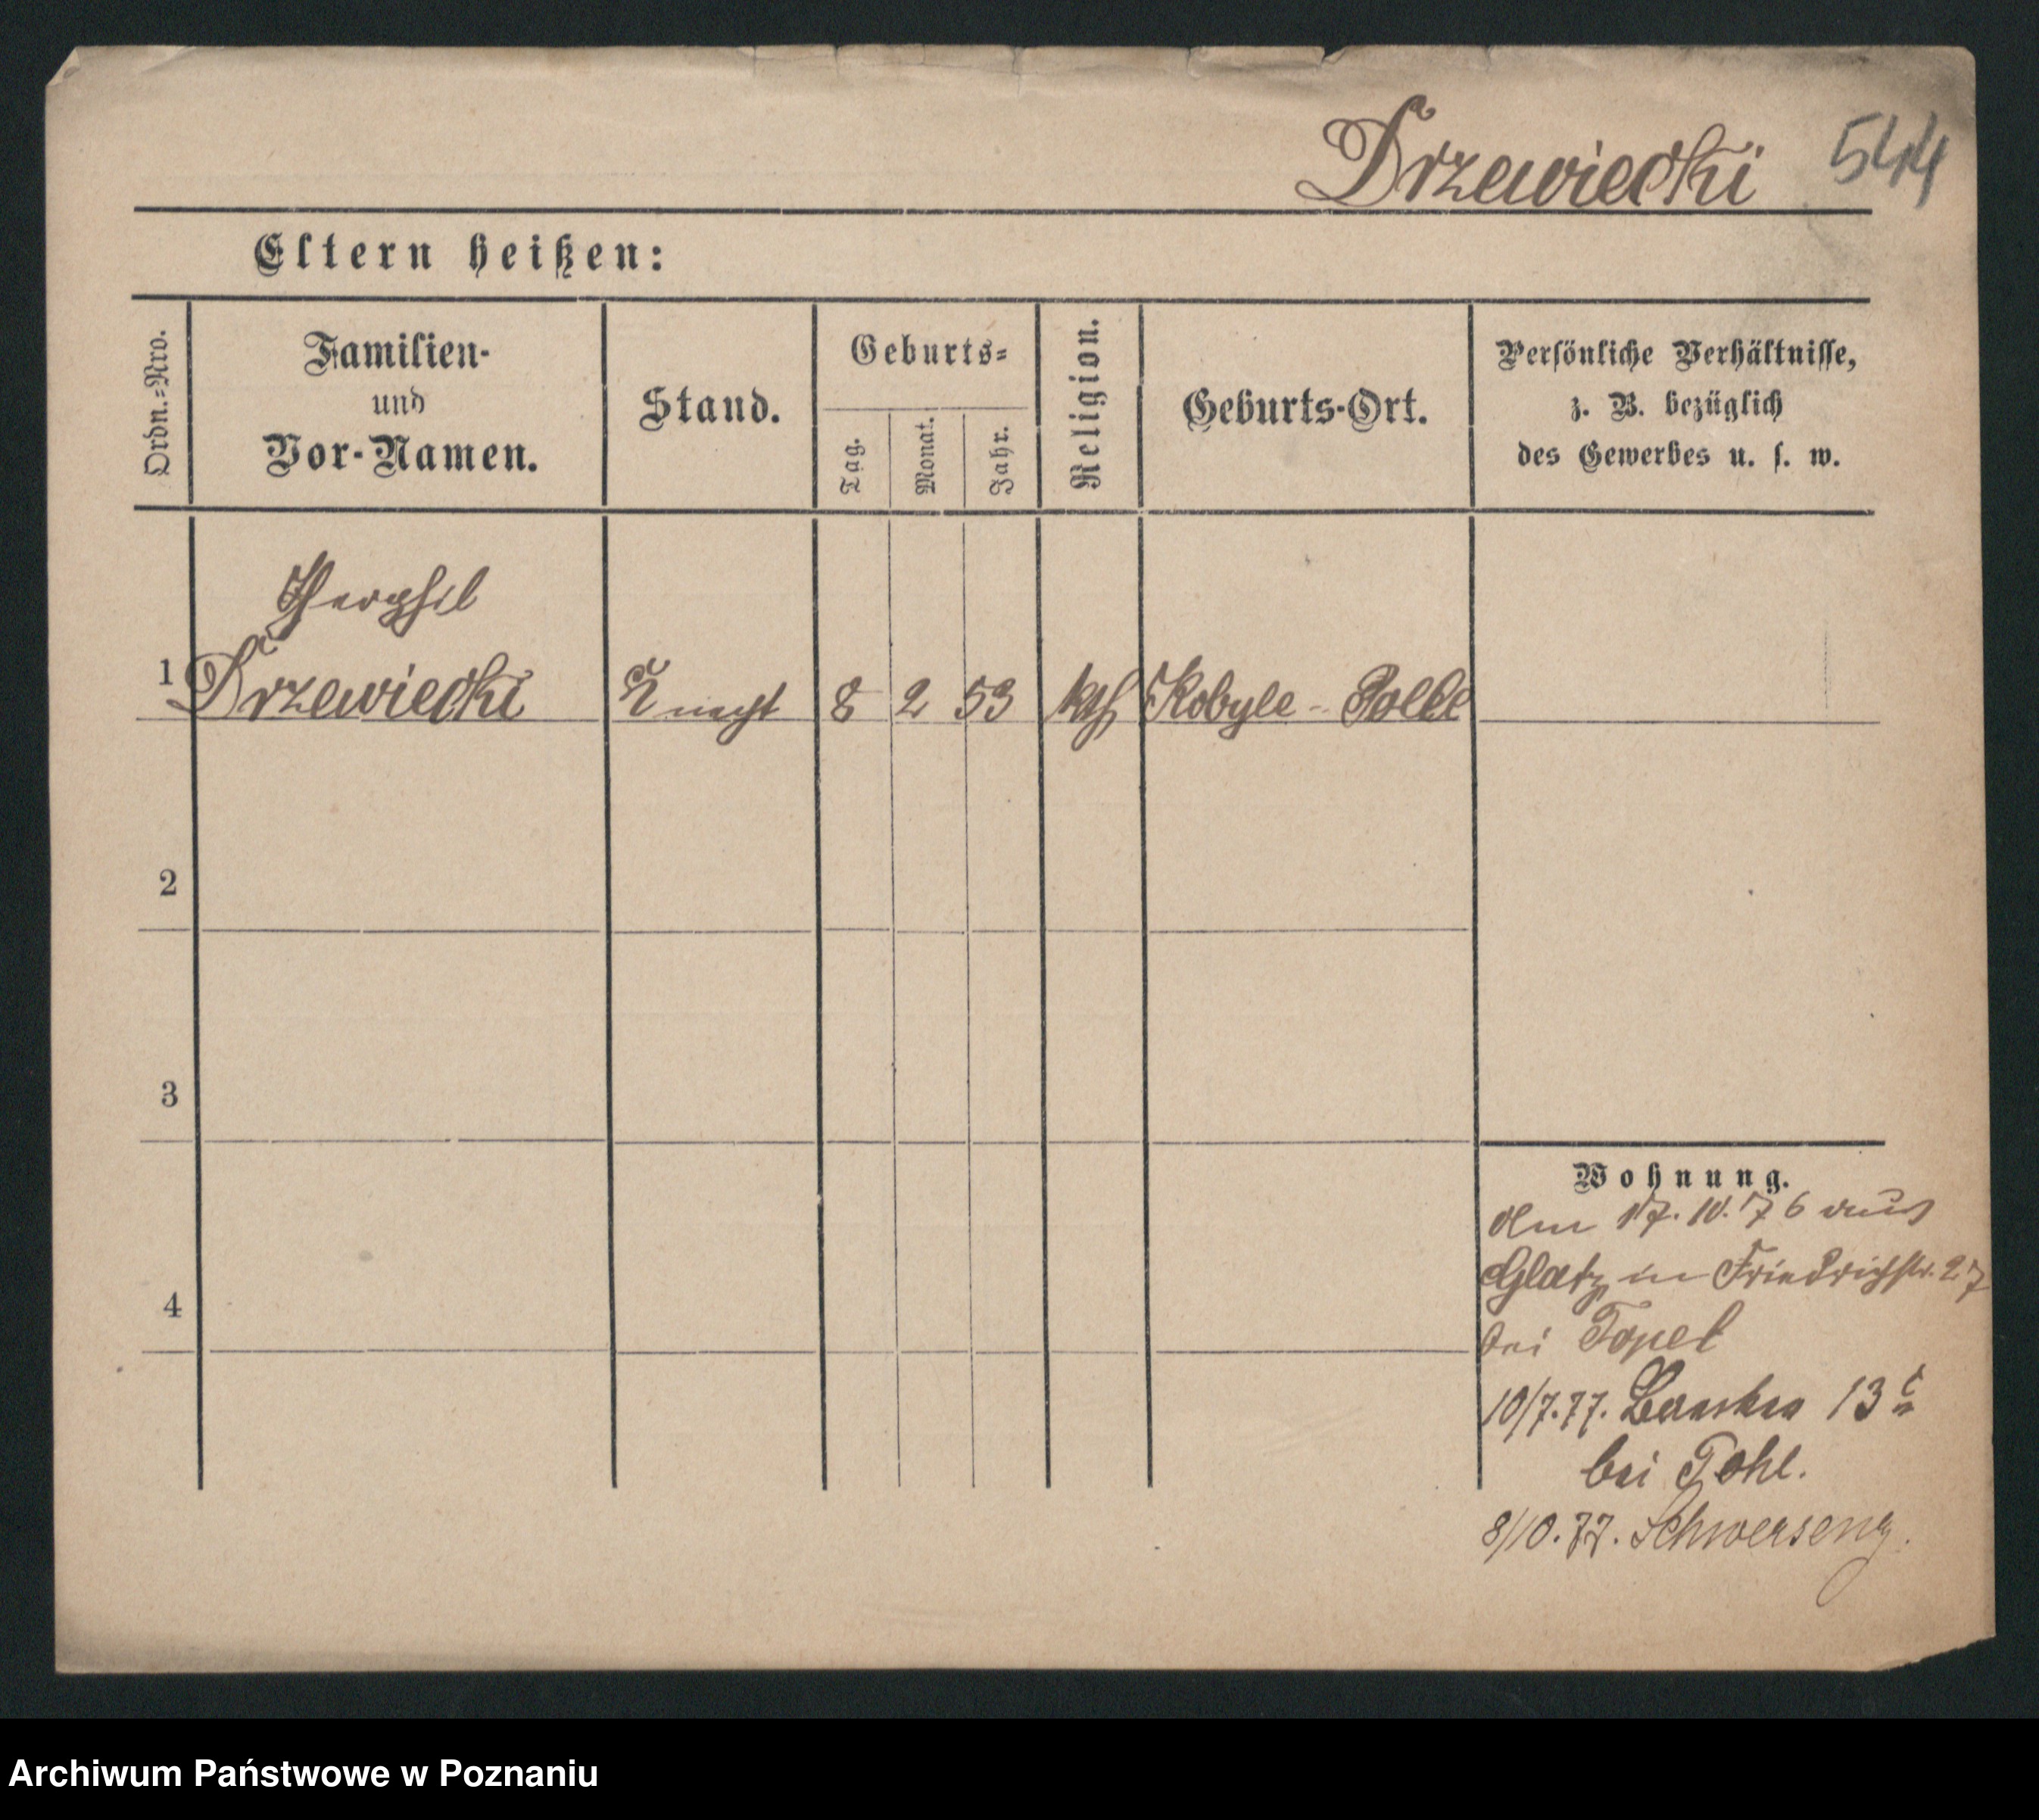 Drzewiecki 544
Eltern heißen:
Ordn.=Nro.
Familien-
und
Vor-Namen.
Stand.
Geburts=
Tag.
Monat.
Jahr.
Religion.
Geburts-Ort.
Persönliche Verhältnisse,
z. B. bezüglich
des Gewerbes u. s. w.
Theophil
1 Drzewiecki Knecht 8 2 53 kth Kobyle-Polle
2
3
4
Wohnung.
Am 17.10.76 aus
Glatz in Friedrichstr. 27
bei
10/7.77. 13
bei Pohl.
8/10.77. Schwersenz.
Archiwum Państwowe w Poznaniu